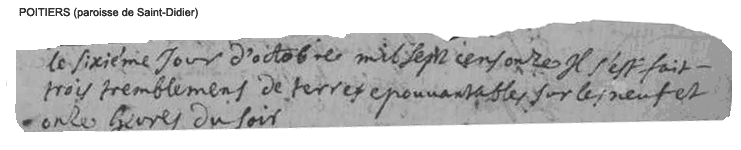 POITIERS (paroisse de Saint-Didier)
le sixiéme Jour d'octobre mil sept cens onze Jl s'est fait
trois tremblemens de terre epouvantables sur les neuf et
onze heures du soir